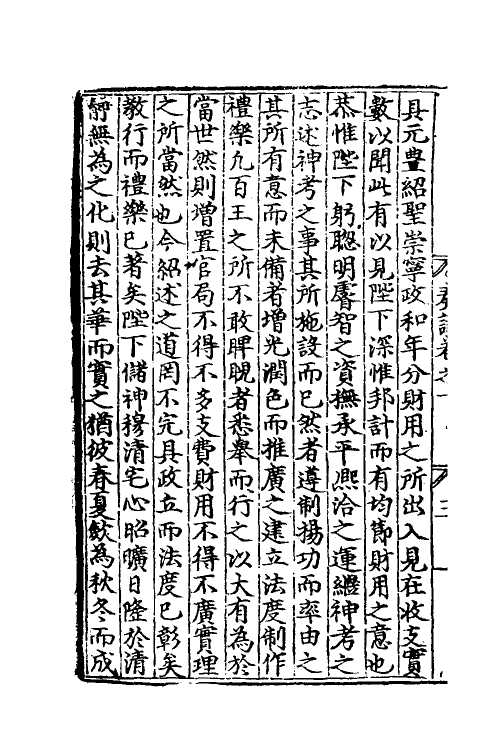 具元豊紹聖崇寧政和年分財用之所出入見在收支實
數以聞此有以見陛下深惟邦計而有均節財用之意也
恭惟陛下躬聦明睿智之資撫承平熙洽之運繼神考之
志述神考之事其所施設而已然者遵制揚功而率由之
其所有意而未備者增光潤色而推廣之建立法度制作
禮樂九百王之所不敢睥睨者悉舉而行之以大有為於
當世然則增置官局不得不多支費財用不得不廣實理
之所當然也今紹述之道罔不完具政立而法度已彰矣
敎行而禮樂已著矣陛下儲神穆清宅心昭曠日隆於清
靜無為之化則去其華而實之猶彼春夏斂為秋冬而成